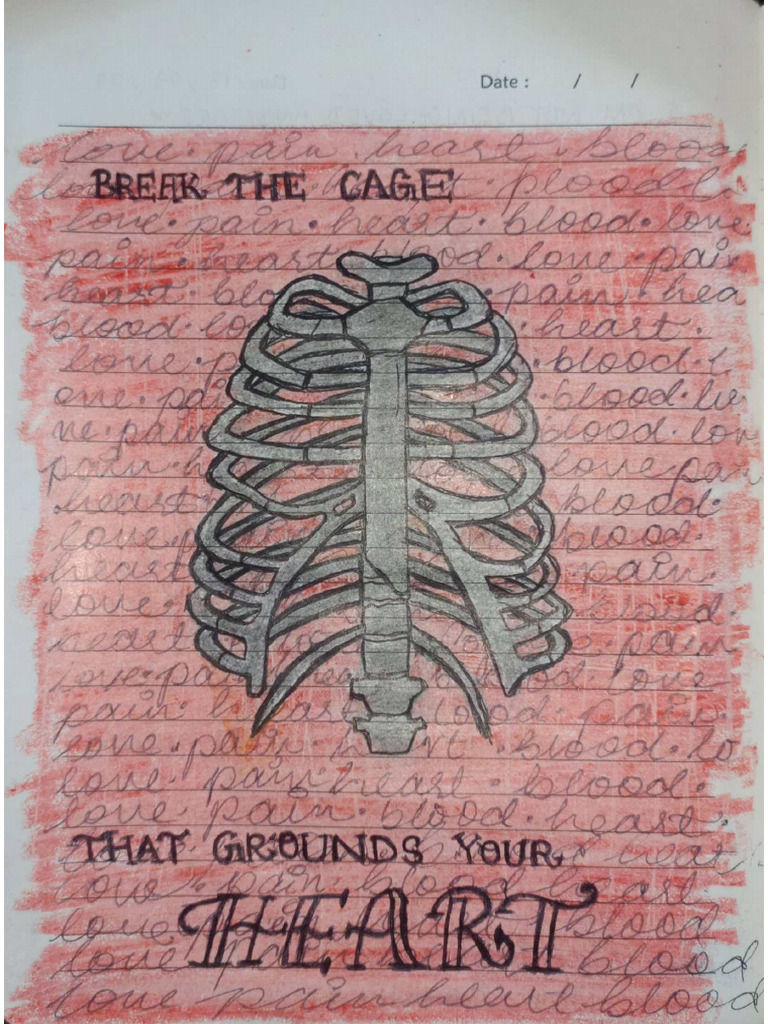 Date : / /
love · pain · heart · blood
BREAK THE CAGE blood
love · pain · heart · blood · love
pain · heart · blood · love · pai
heart · bloo pain · hea
blood · lo heart ·
love · p blood · l
ove · pai blood · lo
ve · pain blood · lov
pain · h love pain
heart blood ·
love · p blood ·
heart pain ·
love blood ·
heart pain
love · pa hea d love
pain · heart blood pain
love · pain · h rt · blood · lo
love · pain · heart · blood ·
love pain · blood · heart ·
THAT GROUNDS YOUR
love · pain blood heart
HEART
love blood
love blood
love pain heart blood